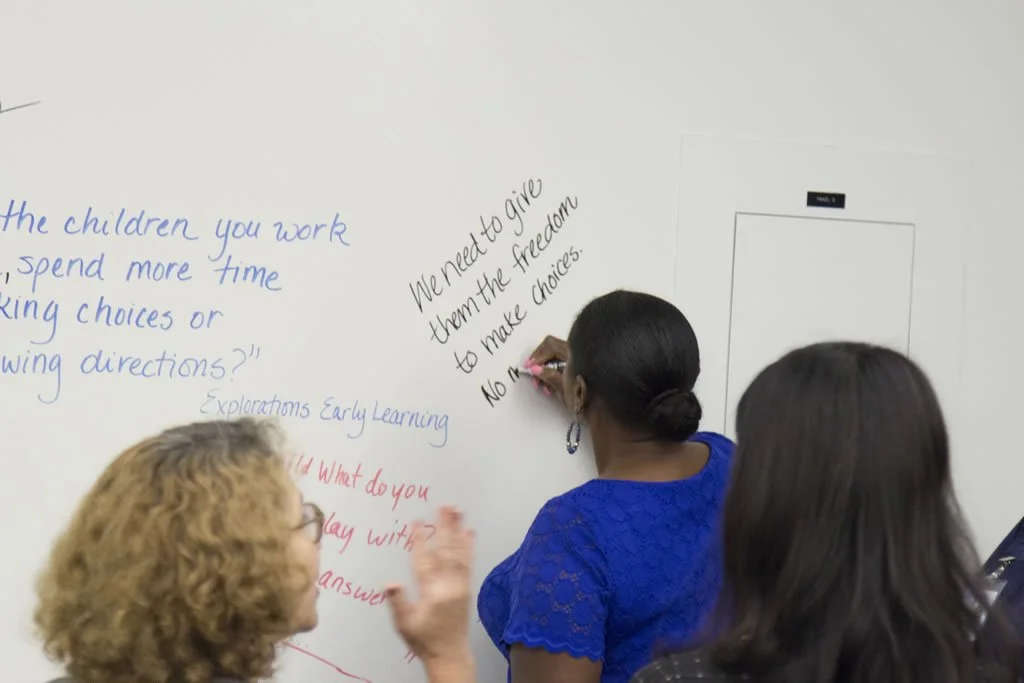 the children you work
, spend more time
king choices or
wing directions?"
Explorations Early Learning
What do you
lay with?
answer
We need to give
them the freedom
to make choices.
No